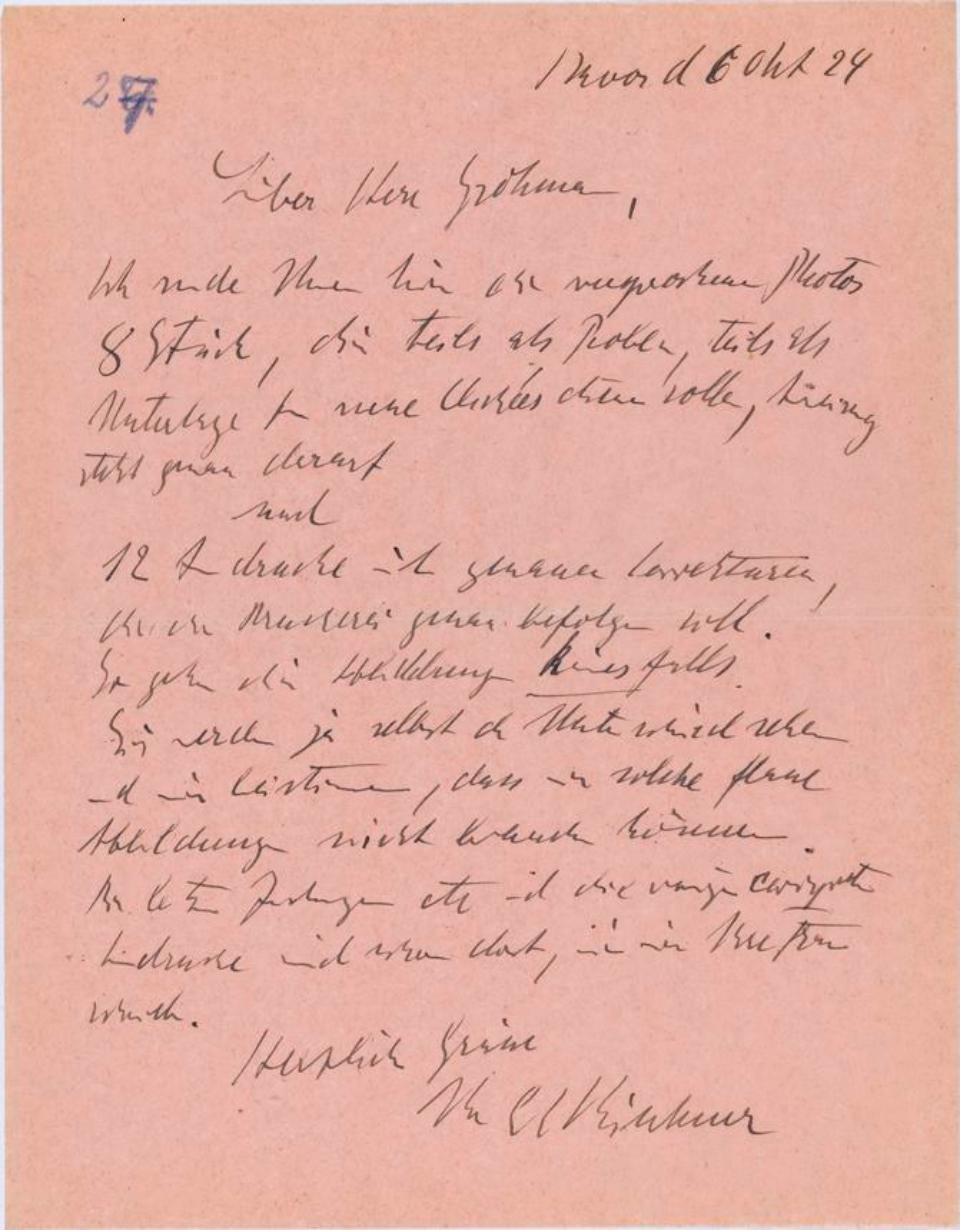 27.
Davos d 6 Okt 24
Lieber Herr Grohmann,
Ich sende Ihnen hier die versprochenen Photos
8 Stück, die teils als Proben, teils als
Unterlage für neue Clichées dienen sollen,
steht genau darauf
und
12 Andrucke mit genauen Correkturen,
die die Druckerei genau befolgen soll.
So gehen die Abbildungen keinesfalls.
Sie werden ja selbst den Unterschied sehen
und mir beistimmen, dass wir solche flaue
Abbildungen nicht brauchen können.
Die letzten etc und die corrigierten
Andrucke sind schon dort, wie mir
schrieb.
Herzliche Grüsse
Ihr E L Kirchner